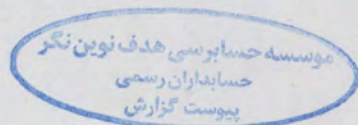 موسسه حسابرسی هدف نوین نگر
حسابداران رسمی
پیوست گزارش